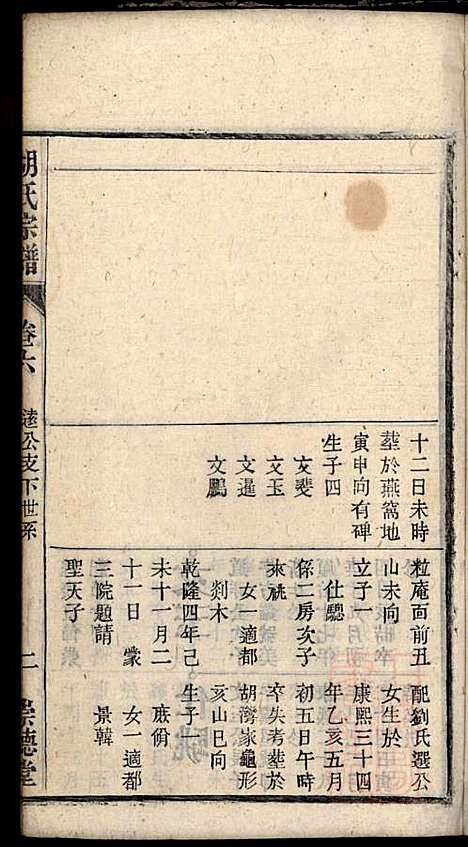 十二日未時
塟於燕窩地
寅申向有碑
生子四
文斐
文玉
文暹
文鵬
粒庵面前丑
山未向
立子一
仕驄
係二房次子
來祧
女一適都
剡木
乾隆四年己
未十一月二
十一日 蒙
三院題請
聖天子
配劉氏選公
女生於
康熙三十四
年乙亥五月
初五日午時
卒失考塟於
胡灣家龜形
亥山巳向
生子十
女一適都
景韓
胡氏宗譜
卷六
逵公支下世系
二
崇德堂